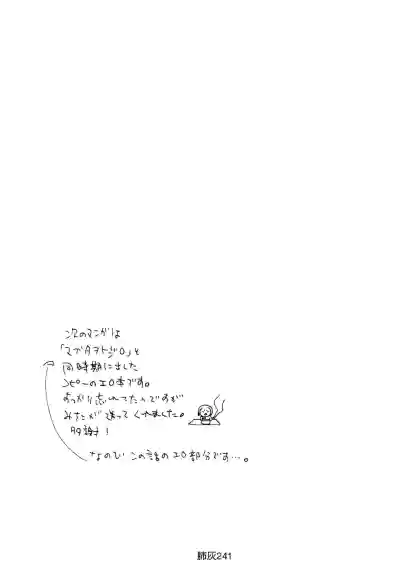 次のマンガは
「マブタヲトジロ」と
同時期に出した
コピーのエロ本です。
すっかり忘れてたんですが
みたが送ってくれました。
多謝!
なのでこの話のエロ部分です…。
肺灰241